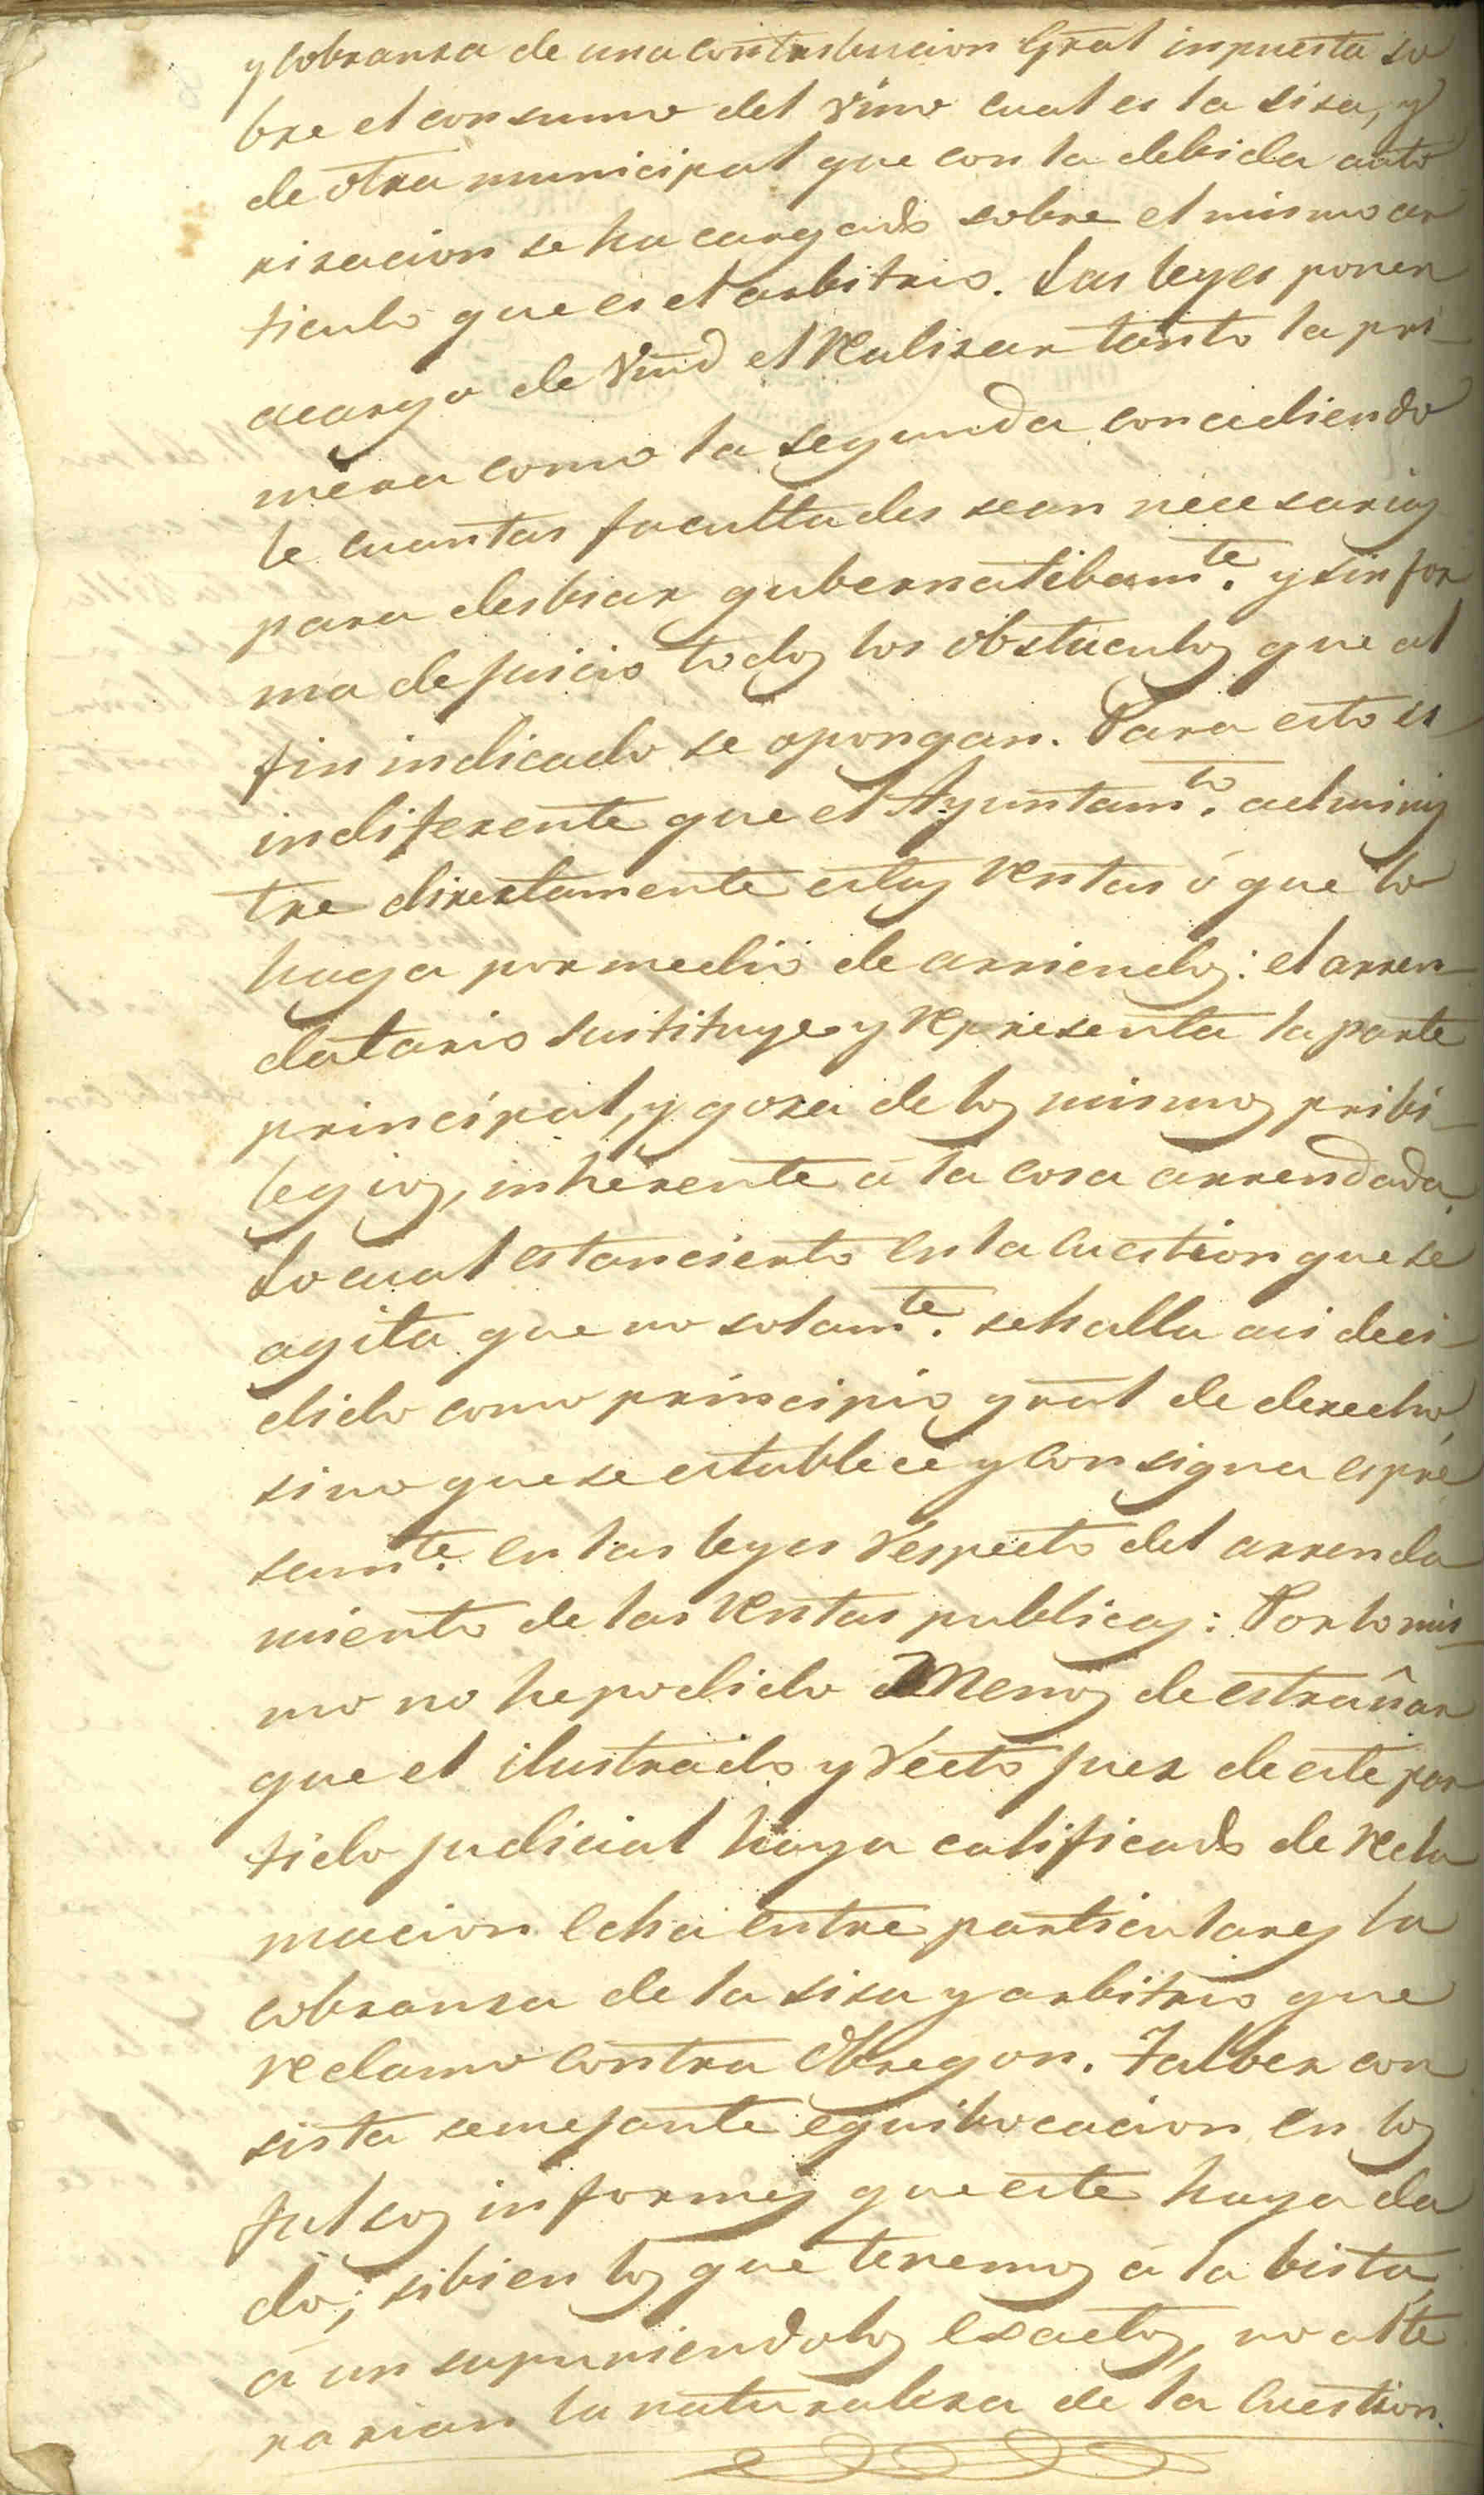 y cobranza de una contribucion Gral impuesta so
bre el consumo del Vino cual es la sisa, y
de otra municipal que con la debida auto
rizacion se ha cargado sobre el mismo ar
ticulo que es el arbitrio. Las leyes ponen
acargo de Vmd el realizar tanto la pri-
mera como la segunda concediendo
le cuantas facultades sean necesarias
para desbiar gubernatibamte. y sin for
ma de juicio todos los obstaculos que al
fin indicado se opongan. Para esto es
indiferente que el Ayuntamto. adminis
tre directamente estas rentas ó que lo
haga por medio de arriendos: el arren-
datario sustituye y representa la parte
principal, y goza de los mismos pribi-
legios, inherente á la cosa arrendada.
Lo cual es tan cierto en la cuestion que se
agita que no solamte. se halla asi deci-
dido como principio gral de derecho,
sino que se establece y consigna espre
samte. en las leyes respecto del arrenda
miento de las rentas publicas: Por lo mis-
mo no he podido menos de estrañar
que el ilustrado y recto juez de este par
tido judicial haya calificado de recla
macion echa entre particulares la
cobranza de la sisa y arbitrio que
reclamo contra Obregon. Talbez con
sista semejante equibocacion en los
falsos informes que este haya da
do; si bien los que tenemos á la bista,
á un supuniendolos esactos, no alte
rarian la naturaleza de la cuestion.